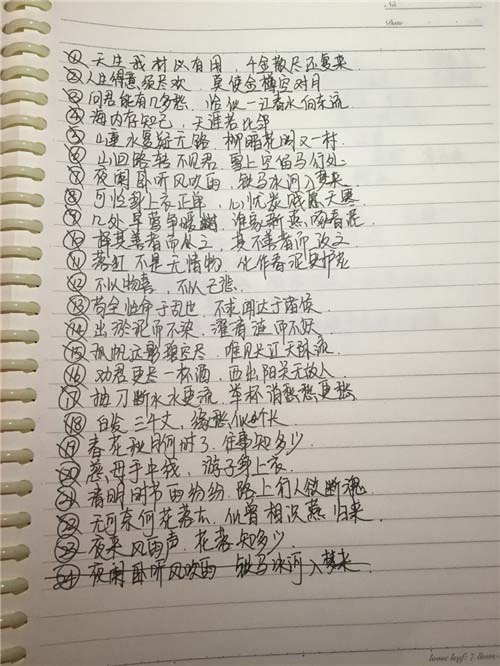 No
Date
① 天生我材必有用，千金散尽还复来
② 人生得意须尽欢，莫使金樽空对月
③ 问君能有几多愁，恰似一江春水向东流
④ 海内存知己，天涯若比邻
⑤ 山重水复疑无路，柳暗花明又一村
⑥ 山回路转不见君，雪上空留马行处
⑦ 夜阑卧听风吹雨，铁马冰河入梦来
⑧ 可怜身上衣正单，心忧炭贱愿天寒
⑨ 几处早莺争暖树，谁家新燕啄春泥
⑩ 择其善者而从之，其不善者而改之
⑪ 落红不是无情物，化作春泥更护花
⑫ 不以物喜，不以己悲
⑬ 苟全性命于乱世，不求闻达于诸侯
⑭ 出淤泥而不染，濯清涟而不妖
⑮ 孤帆远影碧空尽，唯见长江天际流
⑯ 劝君更尽一杯酒，西出阳关无故人
⑰ 抽刀断水水更流，举杯消愁愁更愁
⑱ 白发三千丈，缘愁似个长
⑲ 春花秋月何时了，往事知多少
⑳ 慈母手中线，游子身上衣
㉑ 清明时节雨纷纷，路上行人欲断魂
㉒ 无可奈何花落去，似曾相识燕归来
㉓ 夜来风雨声，花落知多少
㉔ 夜阑卧听风吹雨 铁马冰河入梦来